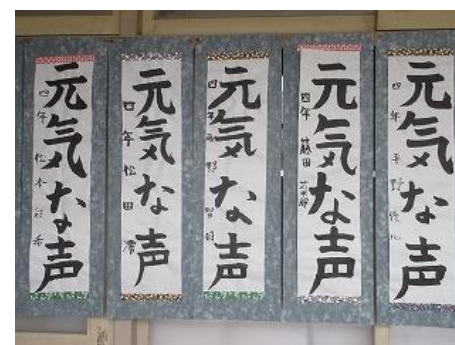 元気な声
四年 平野
元気な声
四年 藤田
元気な声
四年
元気な声
四年 松田 澪
元気な声
四年 松本